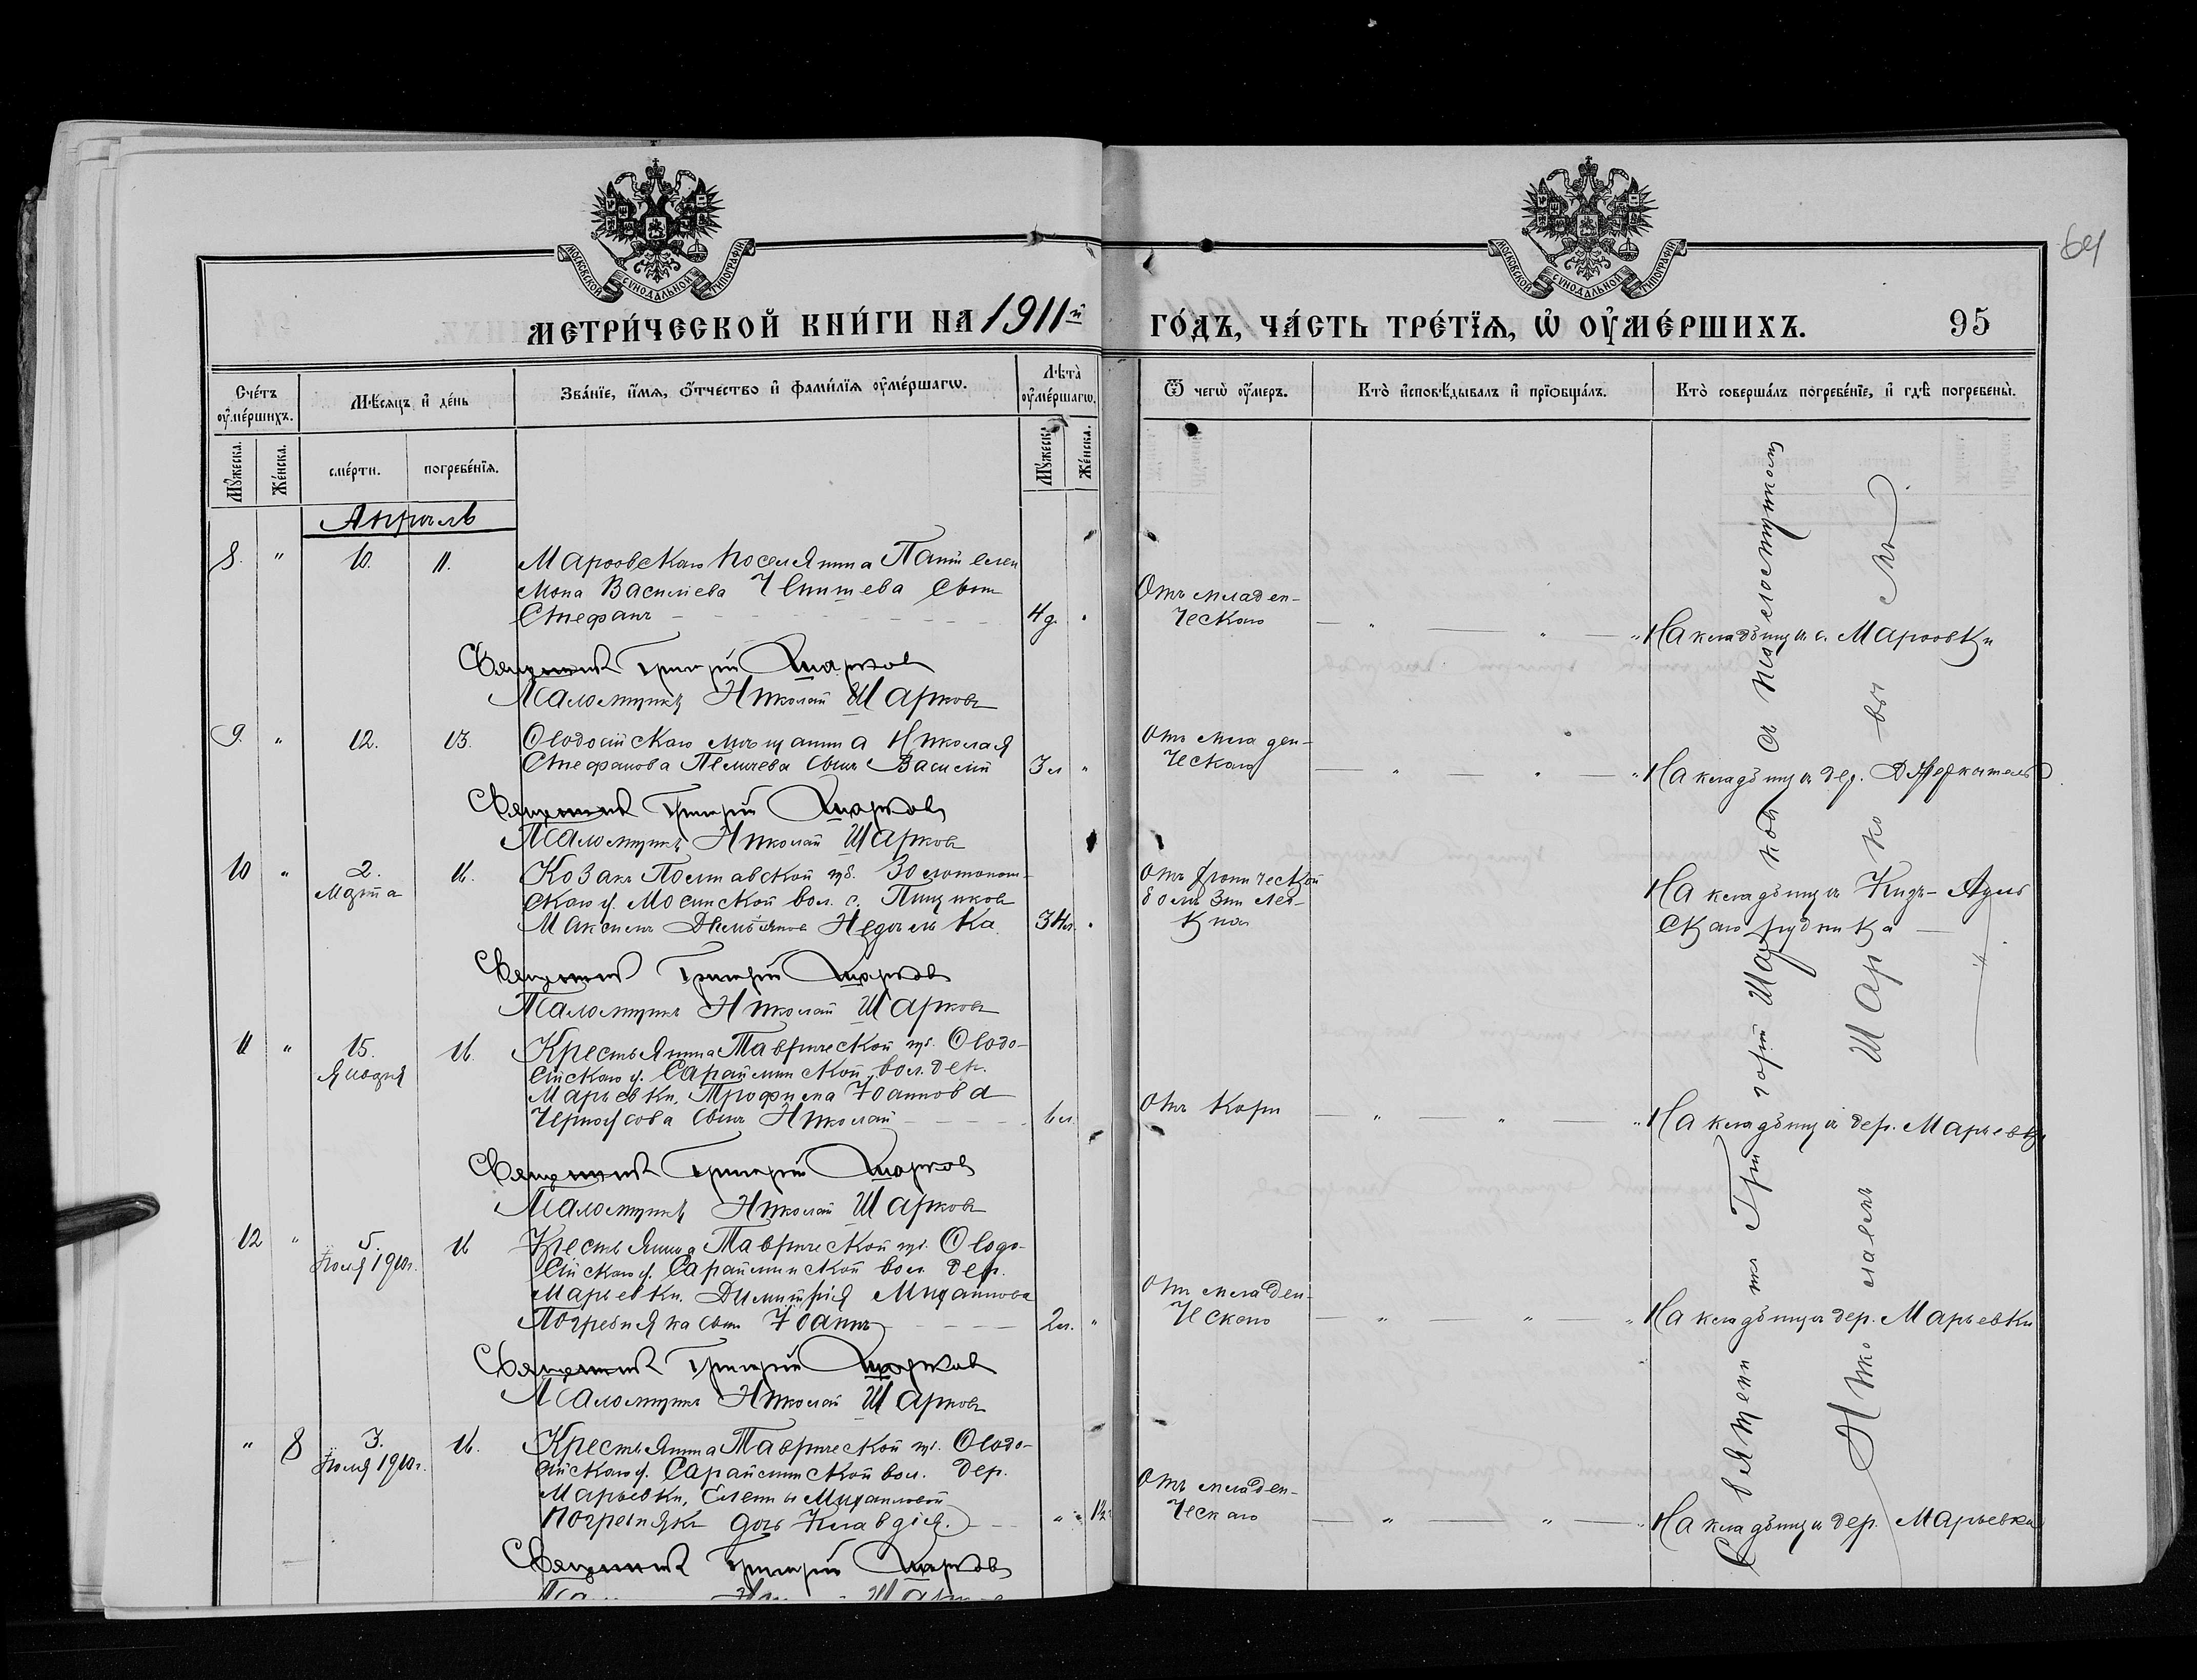 МОСКОВСКОЙ СУНОДАЛЬНОЙ ТИПОГРАФІИ
МОСКОВСКОЙ СУНОДАЛЬНОЙ ТИПОГРАФІИ
64
МЕТРИ́ЧЕСКОЙ КНИ́ГИ НА 1911й ГО́ДЪ, ЧА́СТЬ ТРЕ́ТЇѦ, Ѡ҆ ОУ҆МЕ́РШИХЪ.
95
Сче́тъ оу҆ме́ршихъ.
Мѣ́сяцъ и҆ де́нь
Зва́нїе, и҆́мѧ, ѻ҆́тчество и҆ фами́лїѧ оу҆ме́ршагѡ.
Лѣта̀ оу҆ме́ршагѡ.
Ѿ чегѡ̀ оу҆́меръ.
Кто̀ и҆сповѣ́дывалъ и҆ прїѻбща́лъ.
Кто̀ соверша́лъ погребе́нїе, и҆ гдѣ̀ погребены̀.
Му́жеска.
Же́нска.
сме́рти.
погребе́нїѧ.
Му́жеск.
Же́нска.
Апрѣль
8. " 10. 11. Марфовскаго поселянина Пантелеи
мона Василіева сынъ
Стефанъ 4 д.
Отъ младен-
ческаго
На кладбищѣ с. Марфовки
Священникъ Григорій Шарковъ
Псаломщикъ Николай Шарковъ
9. " 12. 13. Ѳеодосійскаго мѣщанина Николая
Стефанова сынъ Василій 3 л "
Отъ младен-
ческаго
На кладбищѣ дер.
Священникъ Григорій Шарковъ
Псаломщикъ Николай Шарковъ
10 " 2. Марта 16. Козакъ Полтавской губ. Золотонош-
скаго у. вол. с.
Максимъ Недѣлька 34 л.
Отъ хронической
болѣзни лег-
кихъ
На кладбищѣ Кизъ-Аульскаго рудника
Священникъ Григорій Шарковъ
Псаломщикъ Николай Шарковъ
11 " 15. Января 16. Крестьянина Таврической губ. Ѳеодо-
сійскаго у. Сарайминской вол. дер.
Марьевки, Трофима Іоаннова
Черноусова сынъ Николай 6 л
Отъ кори
На кладбищѣ дер. Марьевки
Священникъ Григорій Шарковъ
Псаломщикъ Николай Шарковъ
12 " 5. Іюля 1910 г. 16 Крестьянина Таврической губ. Ѳеодо-
сійскаго у. Сарайминской вол. дер.
Марьевки, Димитрія
Погребняка сынъ Іоаннъ 2 л. "
Отъ младен-
ческаго
На кладбищѣ дер. Марьевки
Священникъ Григорій Шарковъ
Псаломщикъ Николай Шарковъ
" 8 3. Іюля 1910 г. 16. Крестьянина Таврической губ. Ѳеодо-
сійскаго у. Сарайминской вол. дер.
Марьевки, Михаиловой
Погребнякъ дочь Клавдія.
Отъ младен-
ческаго
На кладбищѣ дер. Марьевки
Священникъ Григорій Шарковъ
Священникъ Григорій Шарковъ съ псаломщикомъ
Николаемъ Шарковымъ